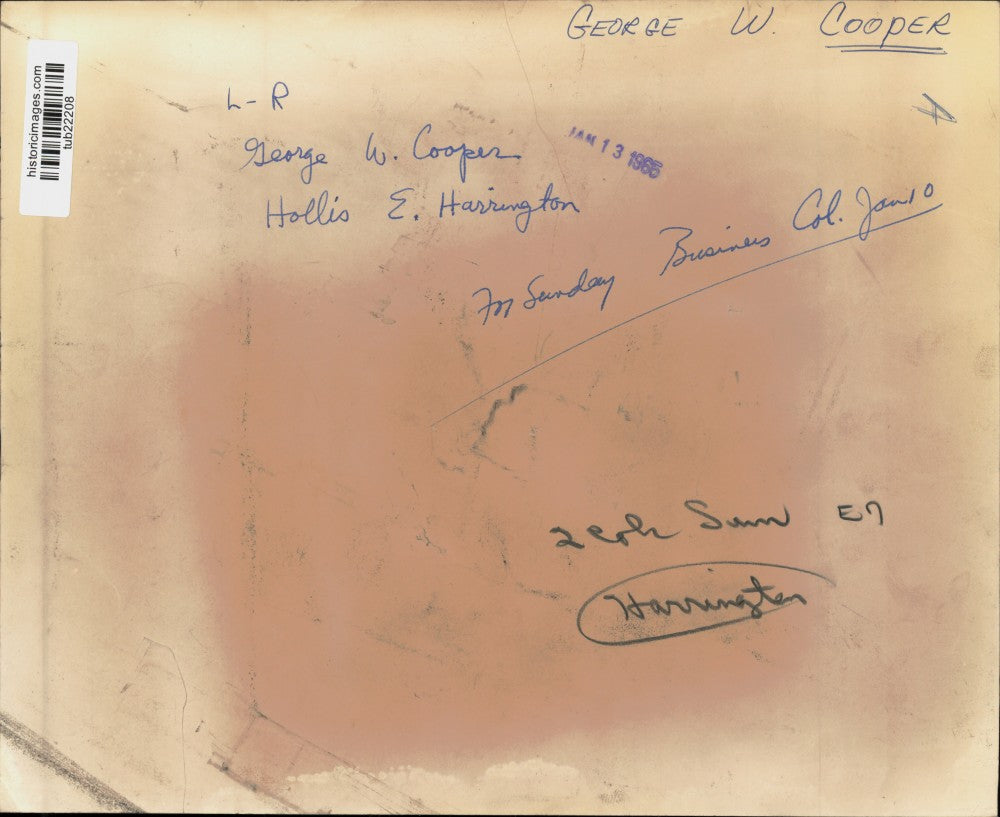 GEORGE W. COOPER
historicimages.com
tub22208
L-R
George W. Cooper
Hollis E. Harrington
JAN 13 1965
For Sunday Business Col. Jan 10
2 Col Sun E7
Harrington